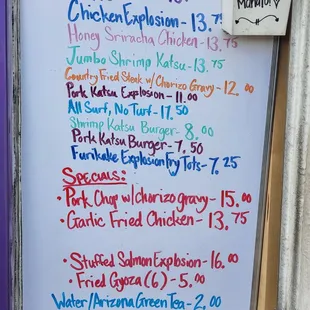 Mahalo!
Chicken Explosion - 13.75
Honey Sriracha Chicken - 13.75
Jumbo Shrimp Katsu - 13.75
Country Fried Steak w/ Chorizo Gravy - 12.00
Pork Katsu Explosion - 11.00
All Surf, No Turf - 17.50
Shrimp Katsu Burger - 8.00
Pork Katsu Burger - 7.50
Furikake Explosion Fry Tots - 7.25
SPECIALS:
• Pork Chop w/ chorizo gravy - 15.00
• Garlic Fried Chicken - 13.75
• Stuffed Salmon Explosion - 16.00
• Fried Gyoza (6) - 5.00
Water/Arizona Green Tea - 2.00